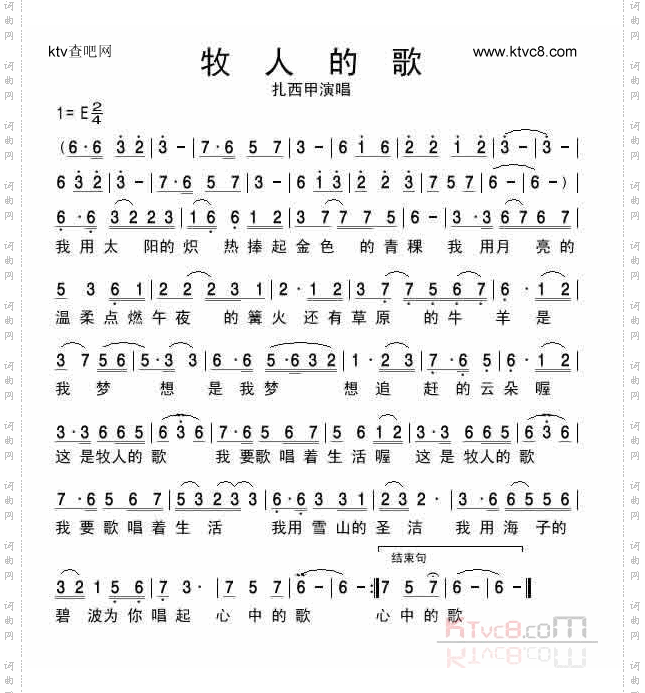 ktv查吧网
www.ktvc8.com
牧人的歌
扎西甲演唱
1=E 2/4
(6·6 3 2|3 -|7·6 5 7|3 -|6 1 6|2 2 1 2|3 -|3 -|
6 3 2|3 -|7·6 5 7|3 -|6 1 3|2 2 3|7 5 7|6 -|6 -)|
6·6 3 2 2 3|1 6 6 1 2|3 7 7 7 5|6 -|3·3 6 7 6 7|
我用太 阳的炽 热捧起金色 的青稞 我 用月 亮的
5 3 6 1|2 2 2 3 1|2·1 2|3 7 7 5 6 7|6·1 2|
温柔点燃午夜 的篝火还有草原 的牛 羊是
3 7 5 6|5·3 3|6 6|5·6 3 2|1·2 3|7·6 5|6·1 2|
我 梦 想 是我梦 想追 赶的云朵喔
3·3 6 6 7|6 3 6|7·6 6 5 6 7|5 6 1 2|3·3 6 6 5|6 3 6|
这是牧人的歌 我要歌唱着生活喔 这是牧人的歌
7·6 5 6 7|5 3 2 3 3|6·6 3 3 1|2 2 3|3·6 6 5 5 6|
我要歌唱着生活 我用雪山的圣洁 我用海子的
结束句
3 2 1 5 6|7 3·|7 5 7|6 -|6 -:|7 5 7|6 -|6 -|
碧 波为你唱起 心中的歌 心中的歌
KTvc8.com
词曲网